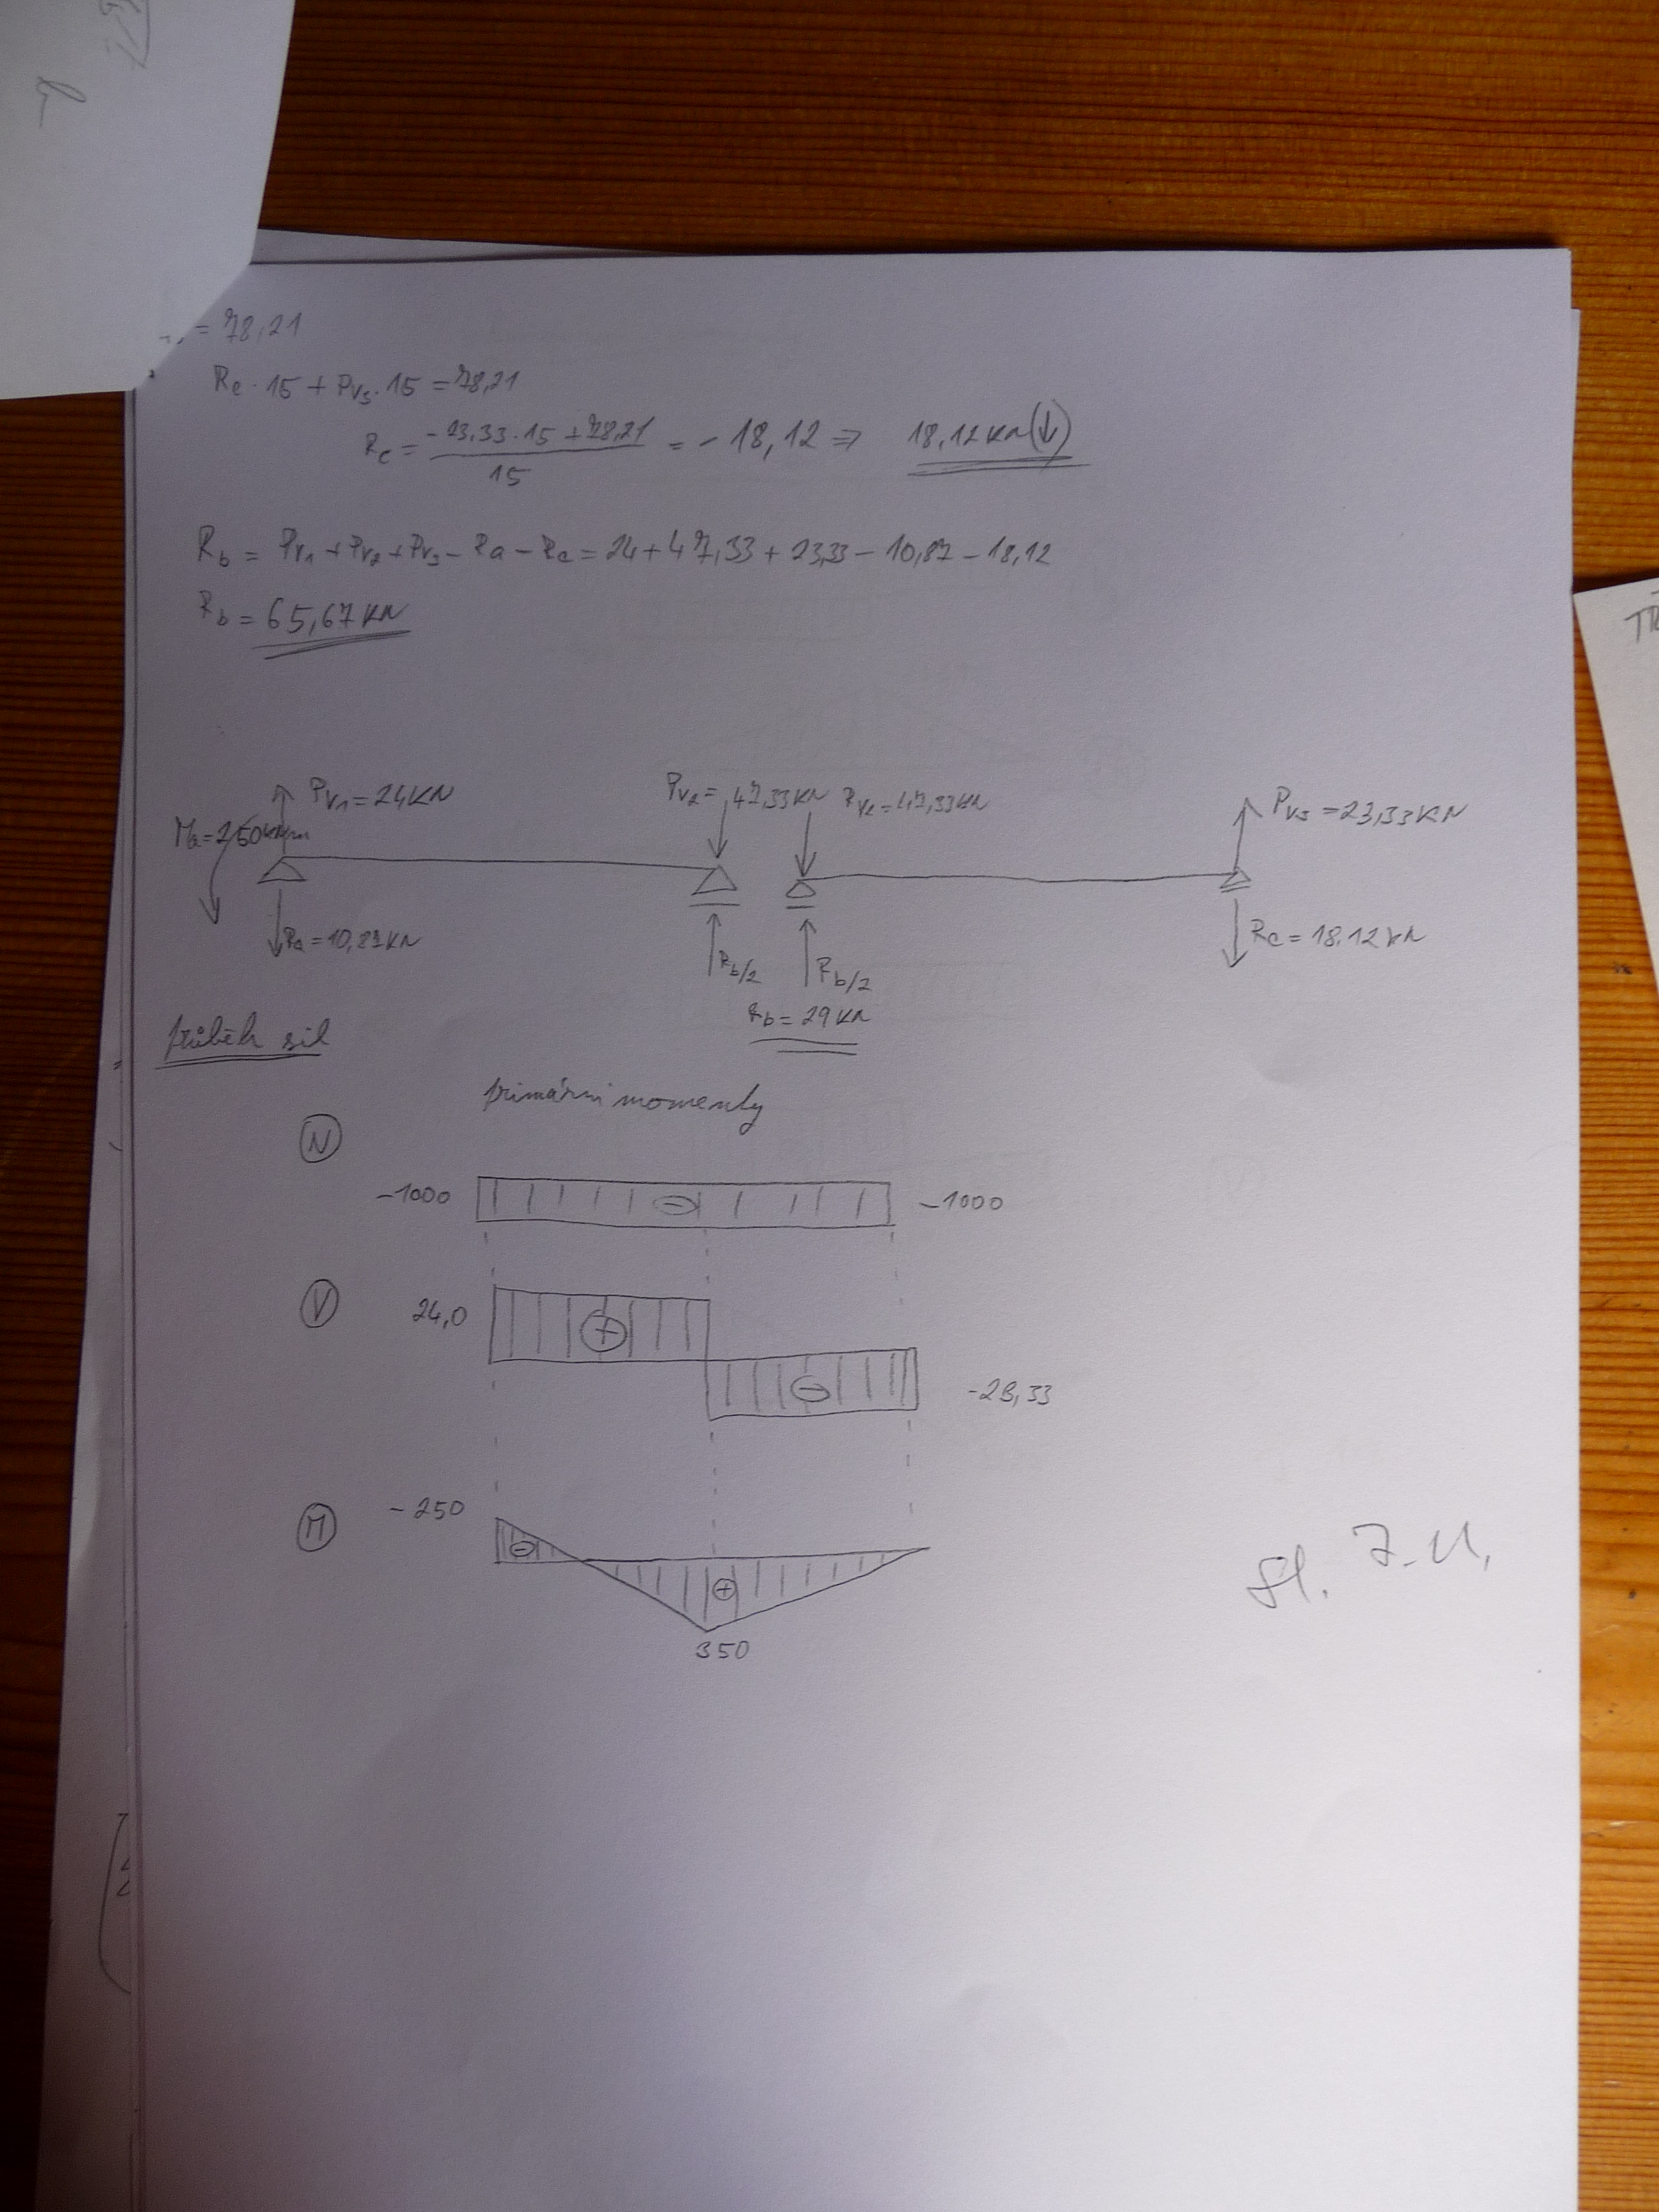 = 78,21
Rc · 15 + Pv3 · 15 = 78,21
Rc = (-23,33 · 15 + 78,21) / 15 = - 18,12 => 18,12 kN (↓)
Rb = Pv1 + Pv2 + Pv3 - Ra - Rc = 24 + 47,33 + 23,33 - 10,87 - 18,12
Rb = 65,67 kN
Pv1 = 24 kN Pv2 = 47,33 kN Pv2 = 47,33 kN Pv3 = 23,33 kN
Ma = 250 kNm
Ra = 10,87 kN Rb/2 Rb/2 Rc = 18,12 kN
Rb = 29 kN
průběh sil
primární momenty
N
-1000 - -1000
V
24,0 + - -28,33
M
-250 - +
350